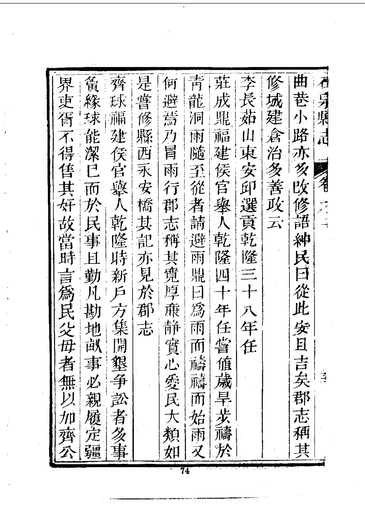 石泉縣志
卷之
曲巷小路亦多改修語紳民曰從此安且吉矣郡志稱其
修城建倉治多善政云
李長茹山東安邱選貢乾隆三十八年任
莊成鼎福建侯官舉人乾隆四十年任嘗值歲旱步禱於
青龍洞雨隨至從者請避雨鼎曰為雨而禱禱而始雨又
何避焉乃冒雨行郡志稱其寬厚廉静實心愛民大類如
是嘗修縣西永安橋其記亦見於郡志
齊球福建侯官舉人乾隆時新戶方集開墾爭訟者多事
夤緣球能潔已而於民事且勤凡勘地畝事必親履定疆
界吏胥不得售其奸故當時言為民父母者無以加齊公
74